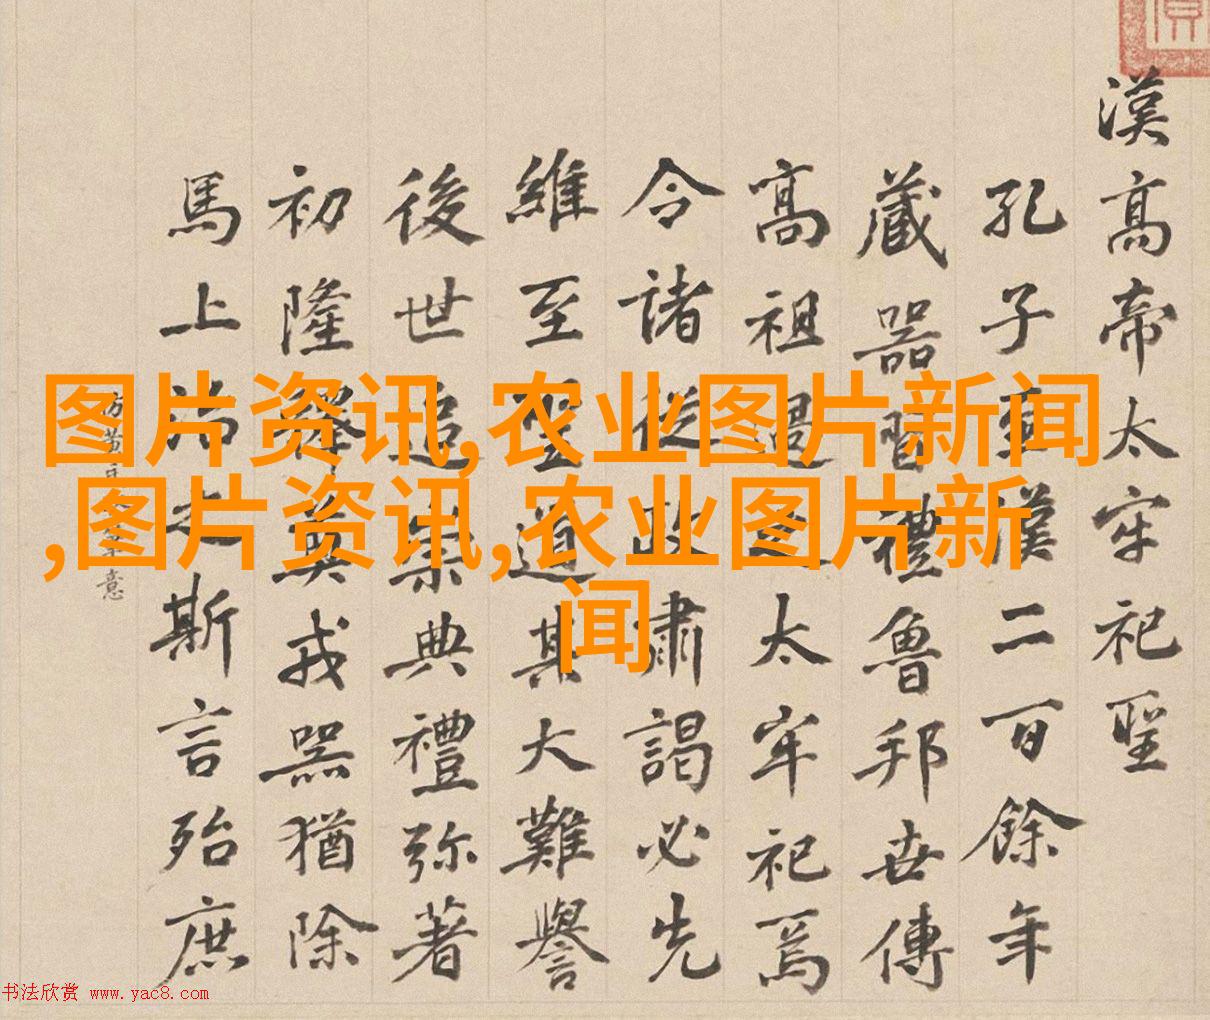 漢高帝太牢祀聖
孔子漢二百餘年
藏器習禮魯邦世傳
高祖過之太牢祀焉
令諸從政肅謁必先
維至聖道其大難譽
後世追崇典禮弥著
初隆釋奠戎器猶除
馬上治之斯言殆庶
意
图片资讯,农业图片新闻
,图片资讯,农业图片新
闻
书法欣赏 www.yac8.com